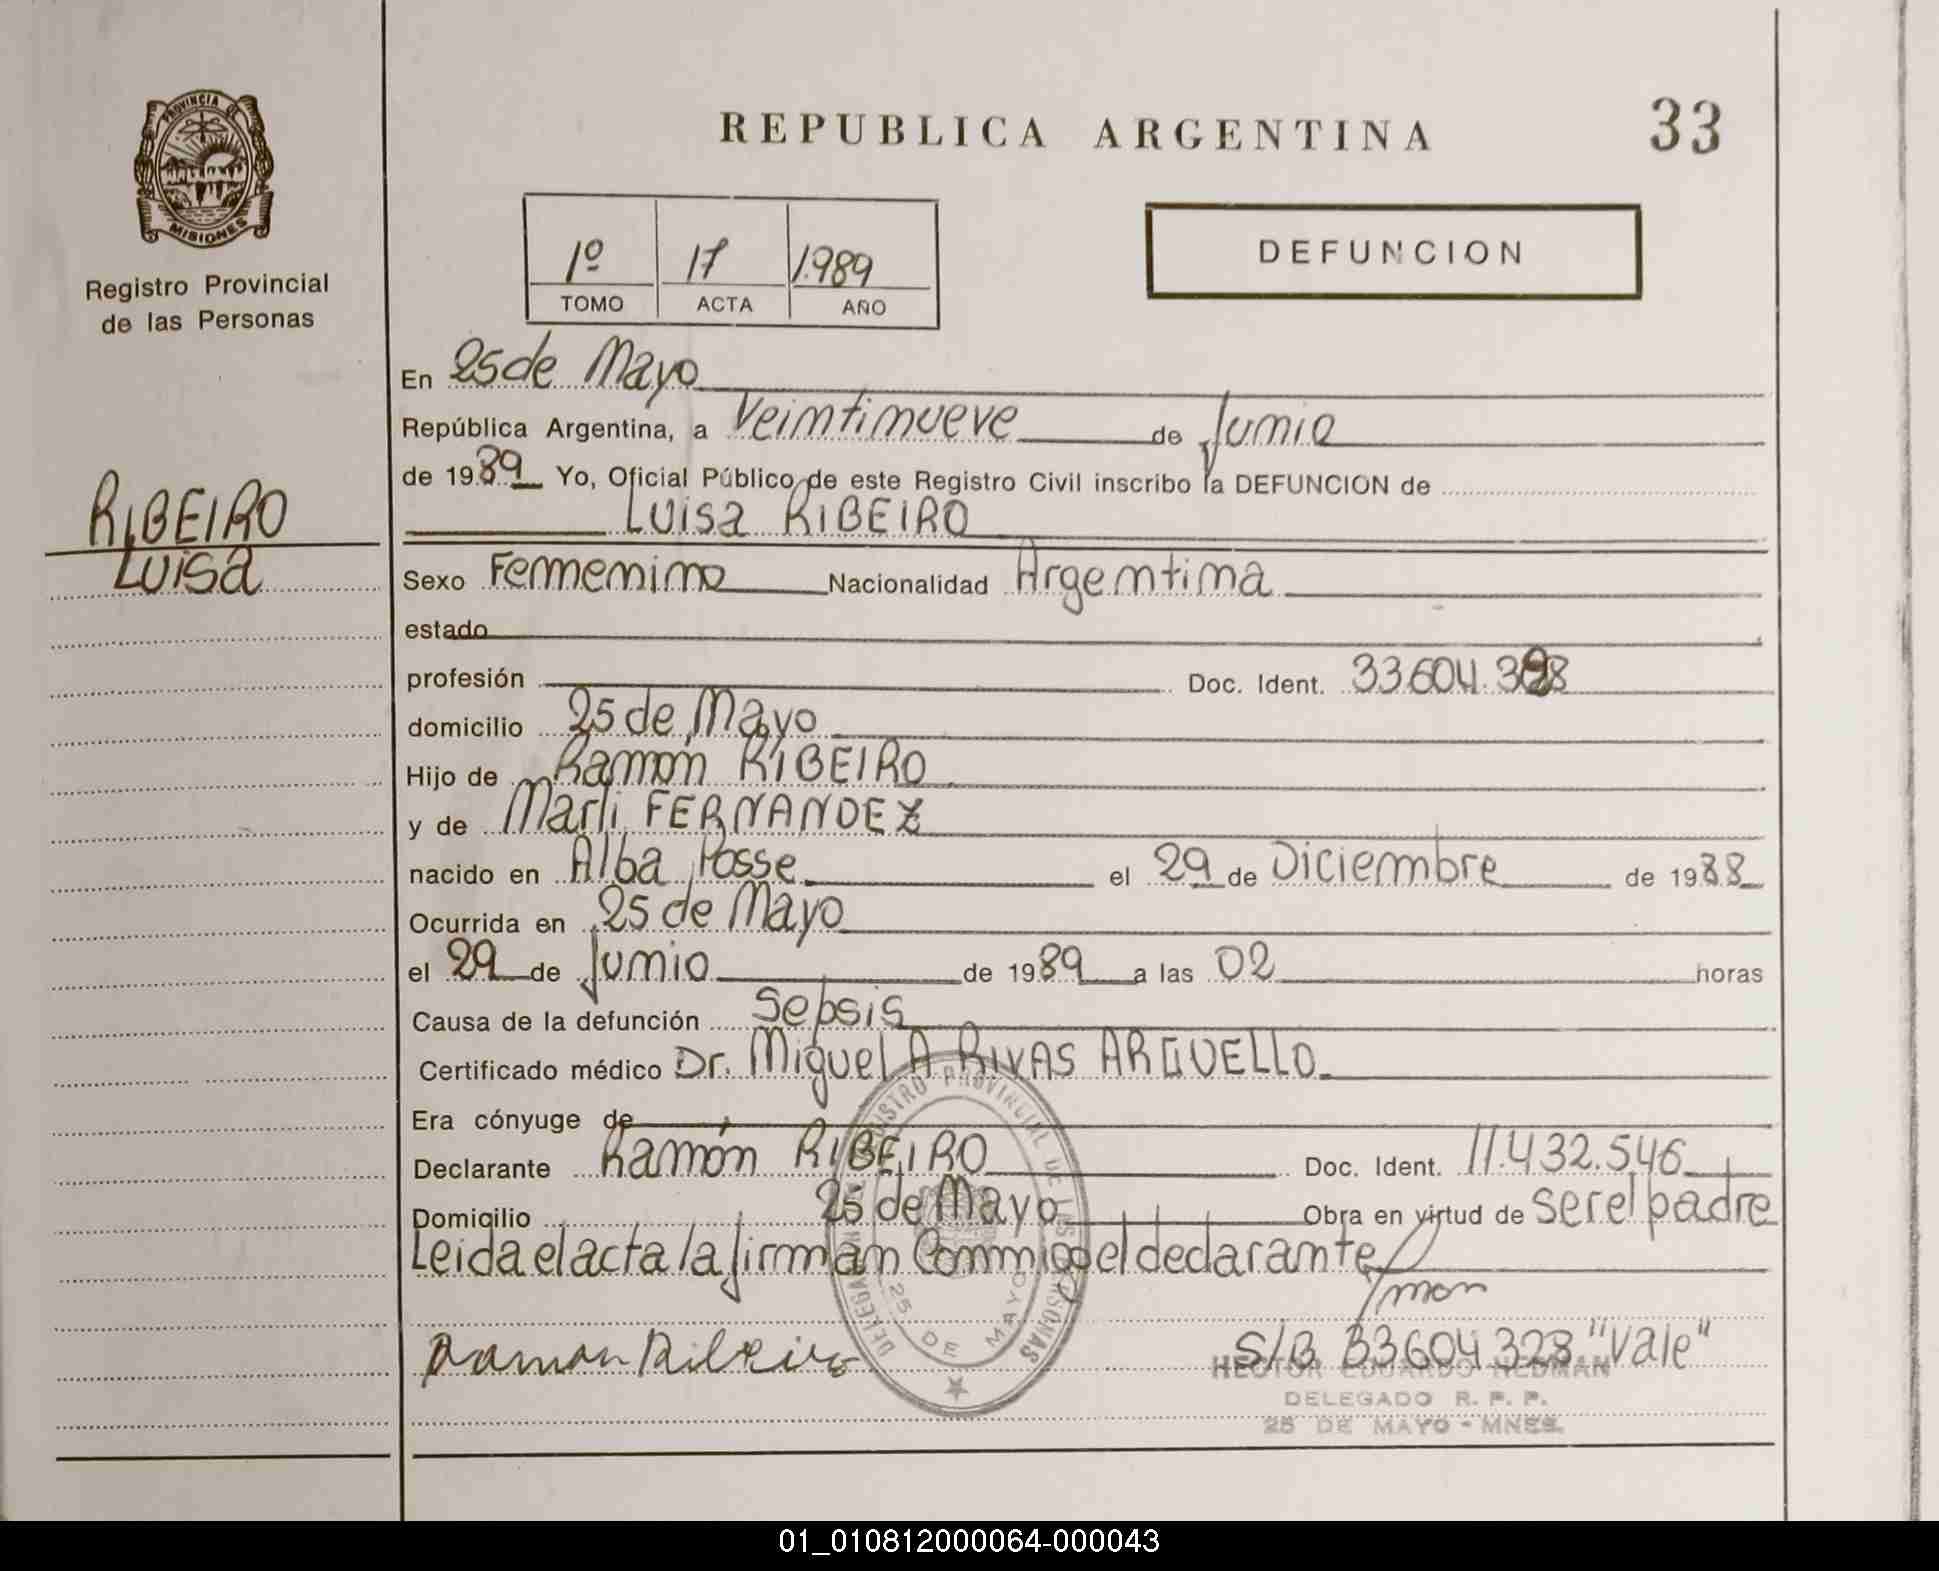 REPUBLICA ARGENTINA
33
PROVINCIA DE
MISIONES
Registro Provincial
de las Personas
1º 17 1.989
TOMO ACTA AÑO
DEFUNCION
En 25 de Mayo
República Argentina, a Veintinueve de Junio
de 1989 Yo, Oficial Público de este Registro Civil inscribo la DEFUNCION de
Luisa RIBEIRO
RIBEIRO
Luisa
Sexo Femmenino Nacionalidad Argentina
estado
profesión Doc. Ident. 33.604.328
domicilio 25 de Mayo
Hijo de Ramón RIBEIRO
y de Marli FERNANDEZ
nacido en Alba Posse el 29 de Diciembre de 1988
Ocurrida en 25 de Mayo
el 29 de Junio de 1989 a las 02 horas
Causa de la defunción Sepsis
Certificado médico Dr. Miguel A RIVAS ARGUELLO
Era cónyuge de
Declarante Ramón RIBEIRO Doc. Ident. 11.432.546
Domicilio 25 de Mayo Obra en virtud de ser el padre
Leida el acta la firman Conmigo el declarante
Ramon Ribeiro
S/B 33604328 "Vale"
HECTOR EDUARDO NEDMAN
DELEGADO R. P. P.
25 DE MAYO - MNES.
REGISTRO PROVINCIAL DE LAS PERSONAS
25 DE MAYO
01_010812000064-000043